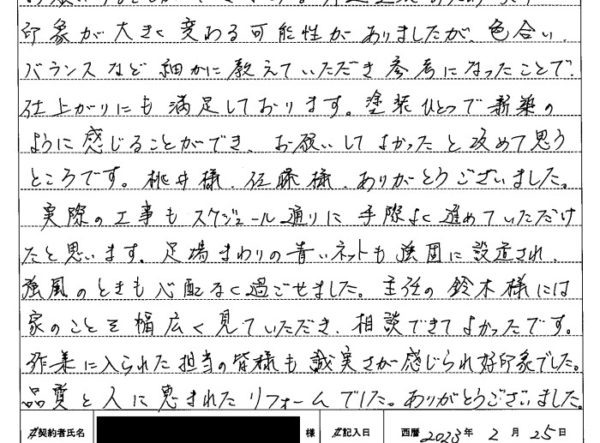 印象が大きく変わる可能性がありましたが、色合い、
バランスなど細かに教えていただき参考になったことで、
仕上がりにも満足しております。塗装ひとつで新築の
ように感じることができ、お願いしてよかったと改めて思う
ところです。桃井様、佐藤様、ありがとうございました。
実際の工事もスケジュール通りに手際よく進めていただけ
たと思います。足場まわりの青いネットも強固に設置され、
強風のときも心配なく過ごせました。主任の鈴木様には
家のことを幅広く見ていただき、相談できてよかったです。
作業に入られた担当の皆様も誠実さが感じられ好印象でした。
品質と人に恵まれたリフォームでした。ありがとうございました。
ご契約者氏名 様 ご記入日 西暦 2023年 2月 25日